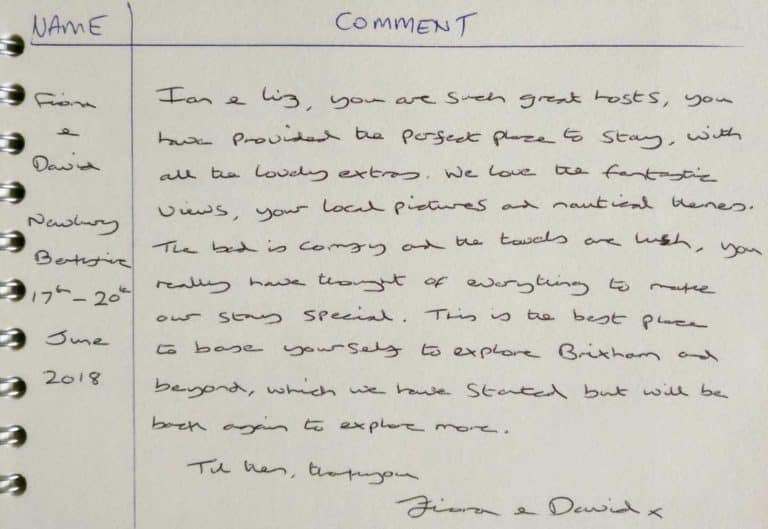 NAME
COMMENT
Fiona
e
David
Newbury
Berkshire
17th - 20th
June
2018
Ian e Liz, you are such great hosts, you
have provided the perfect place to stay, with
all the lovely extras. We love the fantastic
views, your local pictures and nautical themes.
The bed is comfy and the towels are lush, you
really have thought of everything to make
our stay special. This is the best place
to base yourself to explore Brixham and
beyond, which we have started but will be
back again to explore more.
Til then, thankyou
Fiona e David x